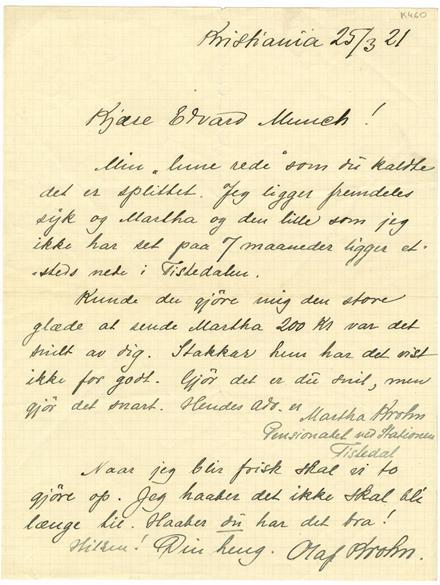 K460
Kristiania 25/3 21
Kjære Edvard Munch!
Min "lune rede" som du kaldte
det er splittet. Jeg ligger fremdeles
syk og Martha og den lille som jeg
ikke har set paa 7 maaneder ligger et-
steds nede i Tistedalen.
Kunde du gjöre mig den store
glæde at sende Martha 200 Kr var det
snilt av dig. Stakkar hun har det vist
ikke for godt. Gjör det er du snil, men
gjör det snart. Hendes adr. er
Martha Krohn
Pensionatet ved Stationen
Tistedal
Naar jeg blir frisk skal vi to
gjöre op. Jeg haaber det ikke skal bli
længe til. Haaber du har det bra!
Hilsen! Din heng. Olaf Krohn.